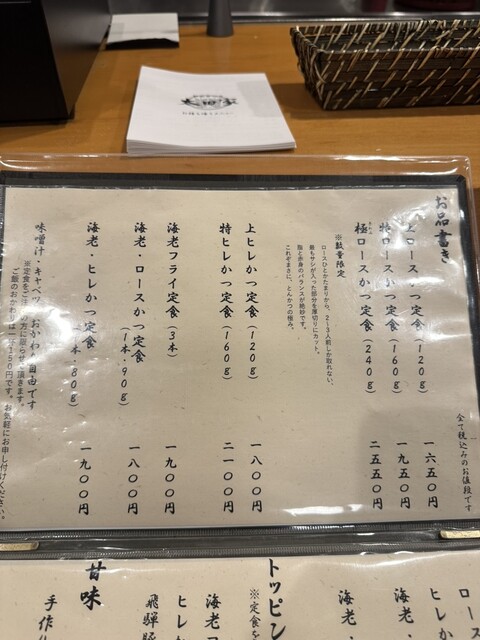 お品書き
全て税込みのお値段です
上ロースかつ定食(120g) 一六五〇円
特ロースかつ定食(160g) 一九五〇円
極ロースかつ定食(240g) 二五五〇円
※数量限定
ロースひとかたまりから、2〜3人前しか取れない、
最もサシが入った部分を厚切りにカット。
脂と赤身のバランスが絶妙です。
これぞまさに、とんかつの極み。
上ヒレかつ定食(120g) 一八〇〇円
特ヒレかつ定食(160g) 二一〇〇円
海老フライ定食(3本) 一九〇〇円
海老・ロースかつ定食(1本・90g) 一八〇〇円
海老・ヒレかつ定食(本・80g) 一九〇〇円
味噌汁・キャベツ おかわり自由です
※定食をご の方に限らせて頂きます。
ご飯のおかわりは 150円です。お気軽にお申し付けください。
トッピン
※定食を
ロー
ヒレか
海老
海老・
海老フ
ヒレか
飛騨豚
甘味
手作